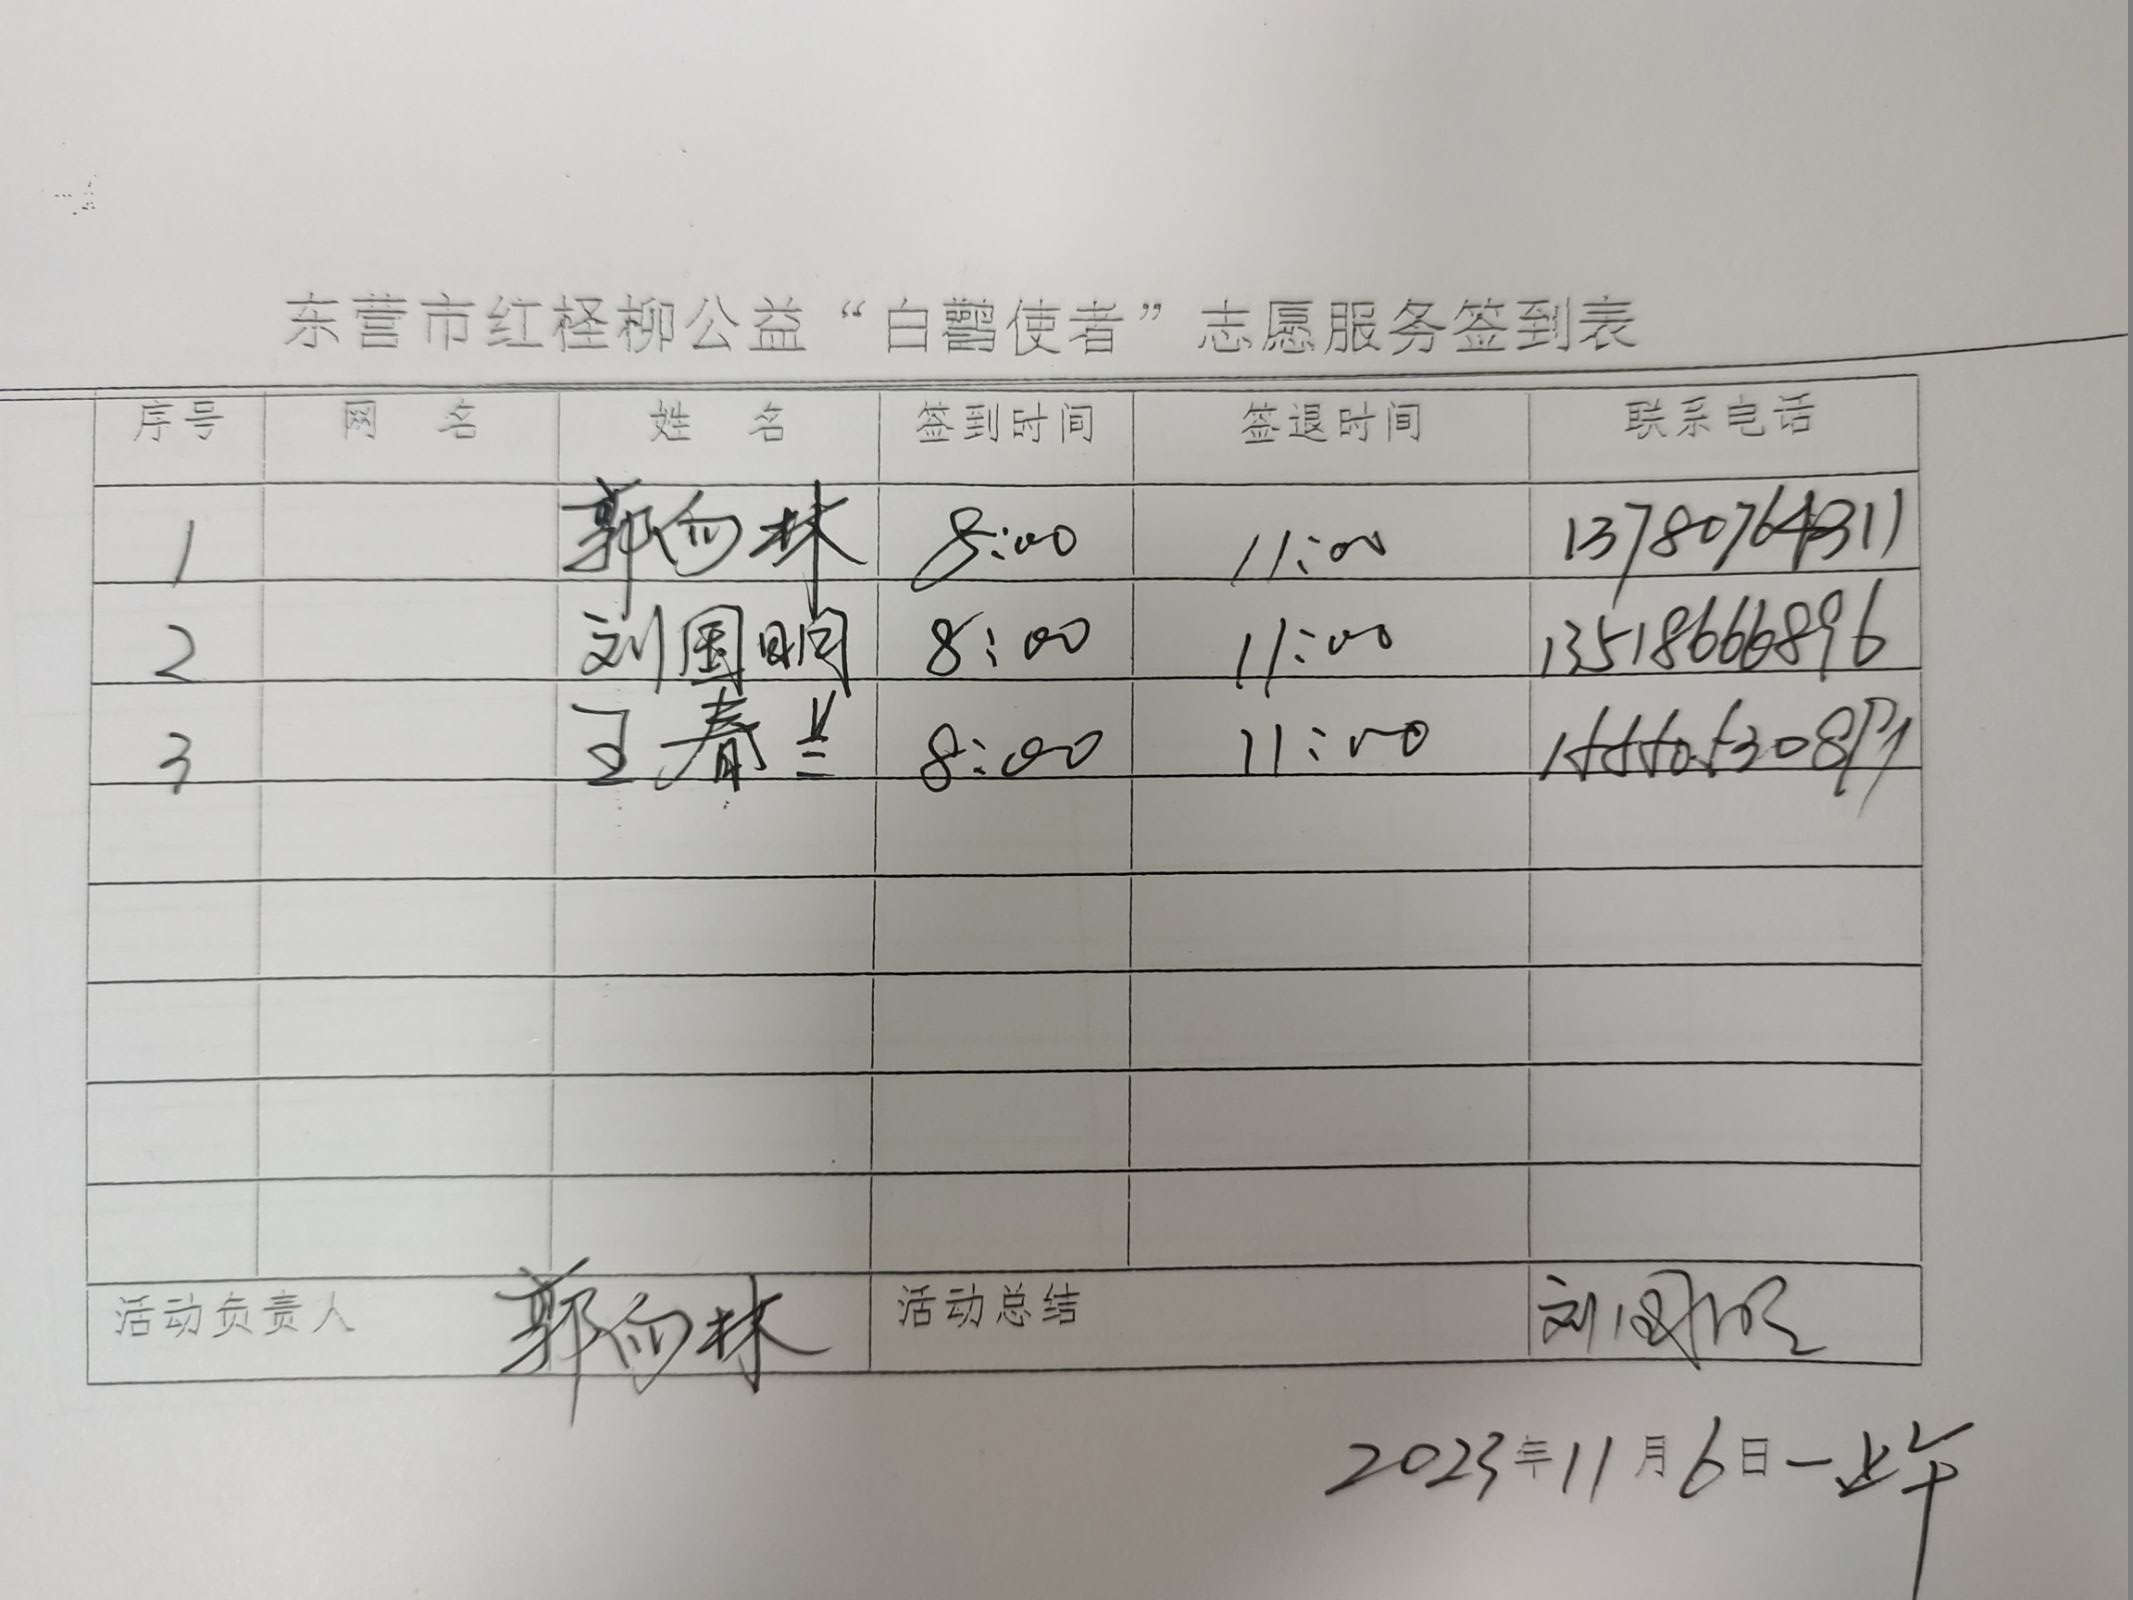 东营市红柽柳公益“白鹳使者”志愿服务签到表
序号 网 名 姓 名 签到时间 签退时间 联系电话
1 郭向林 8:00 11:00 13780764311
2 刘国明 8:00 11:00 13518666896
3 王春兰 8:00 11:00
活动负责人 郭向林 活动总结 刘国明
2023年11月6日一上午